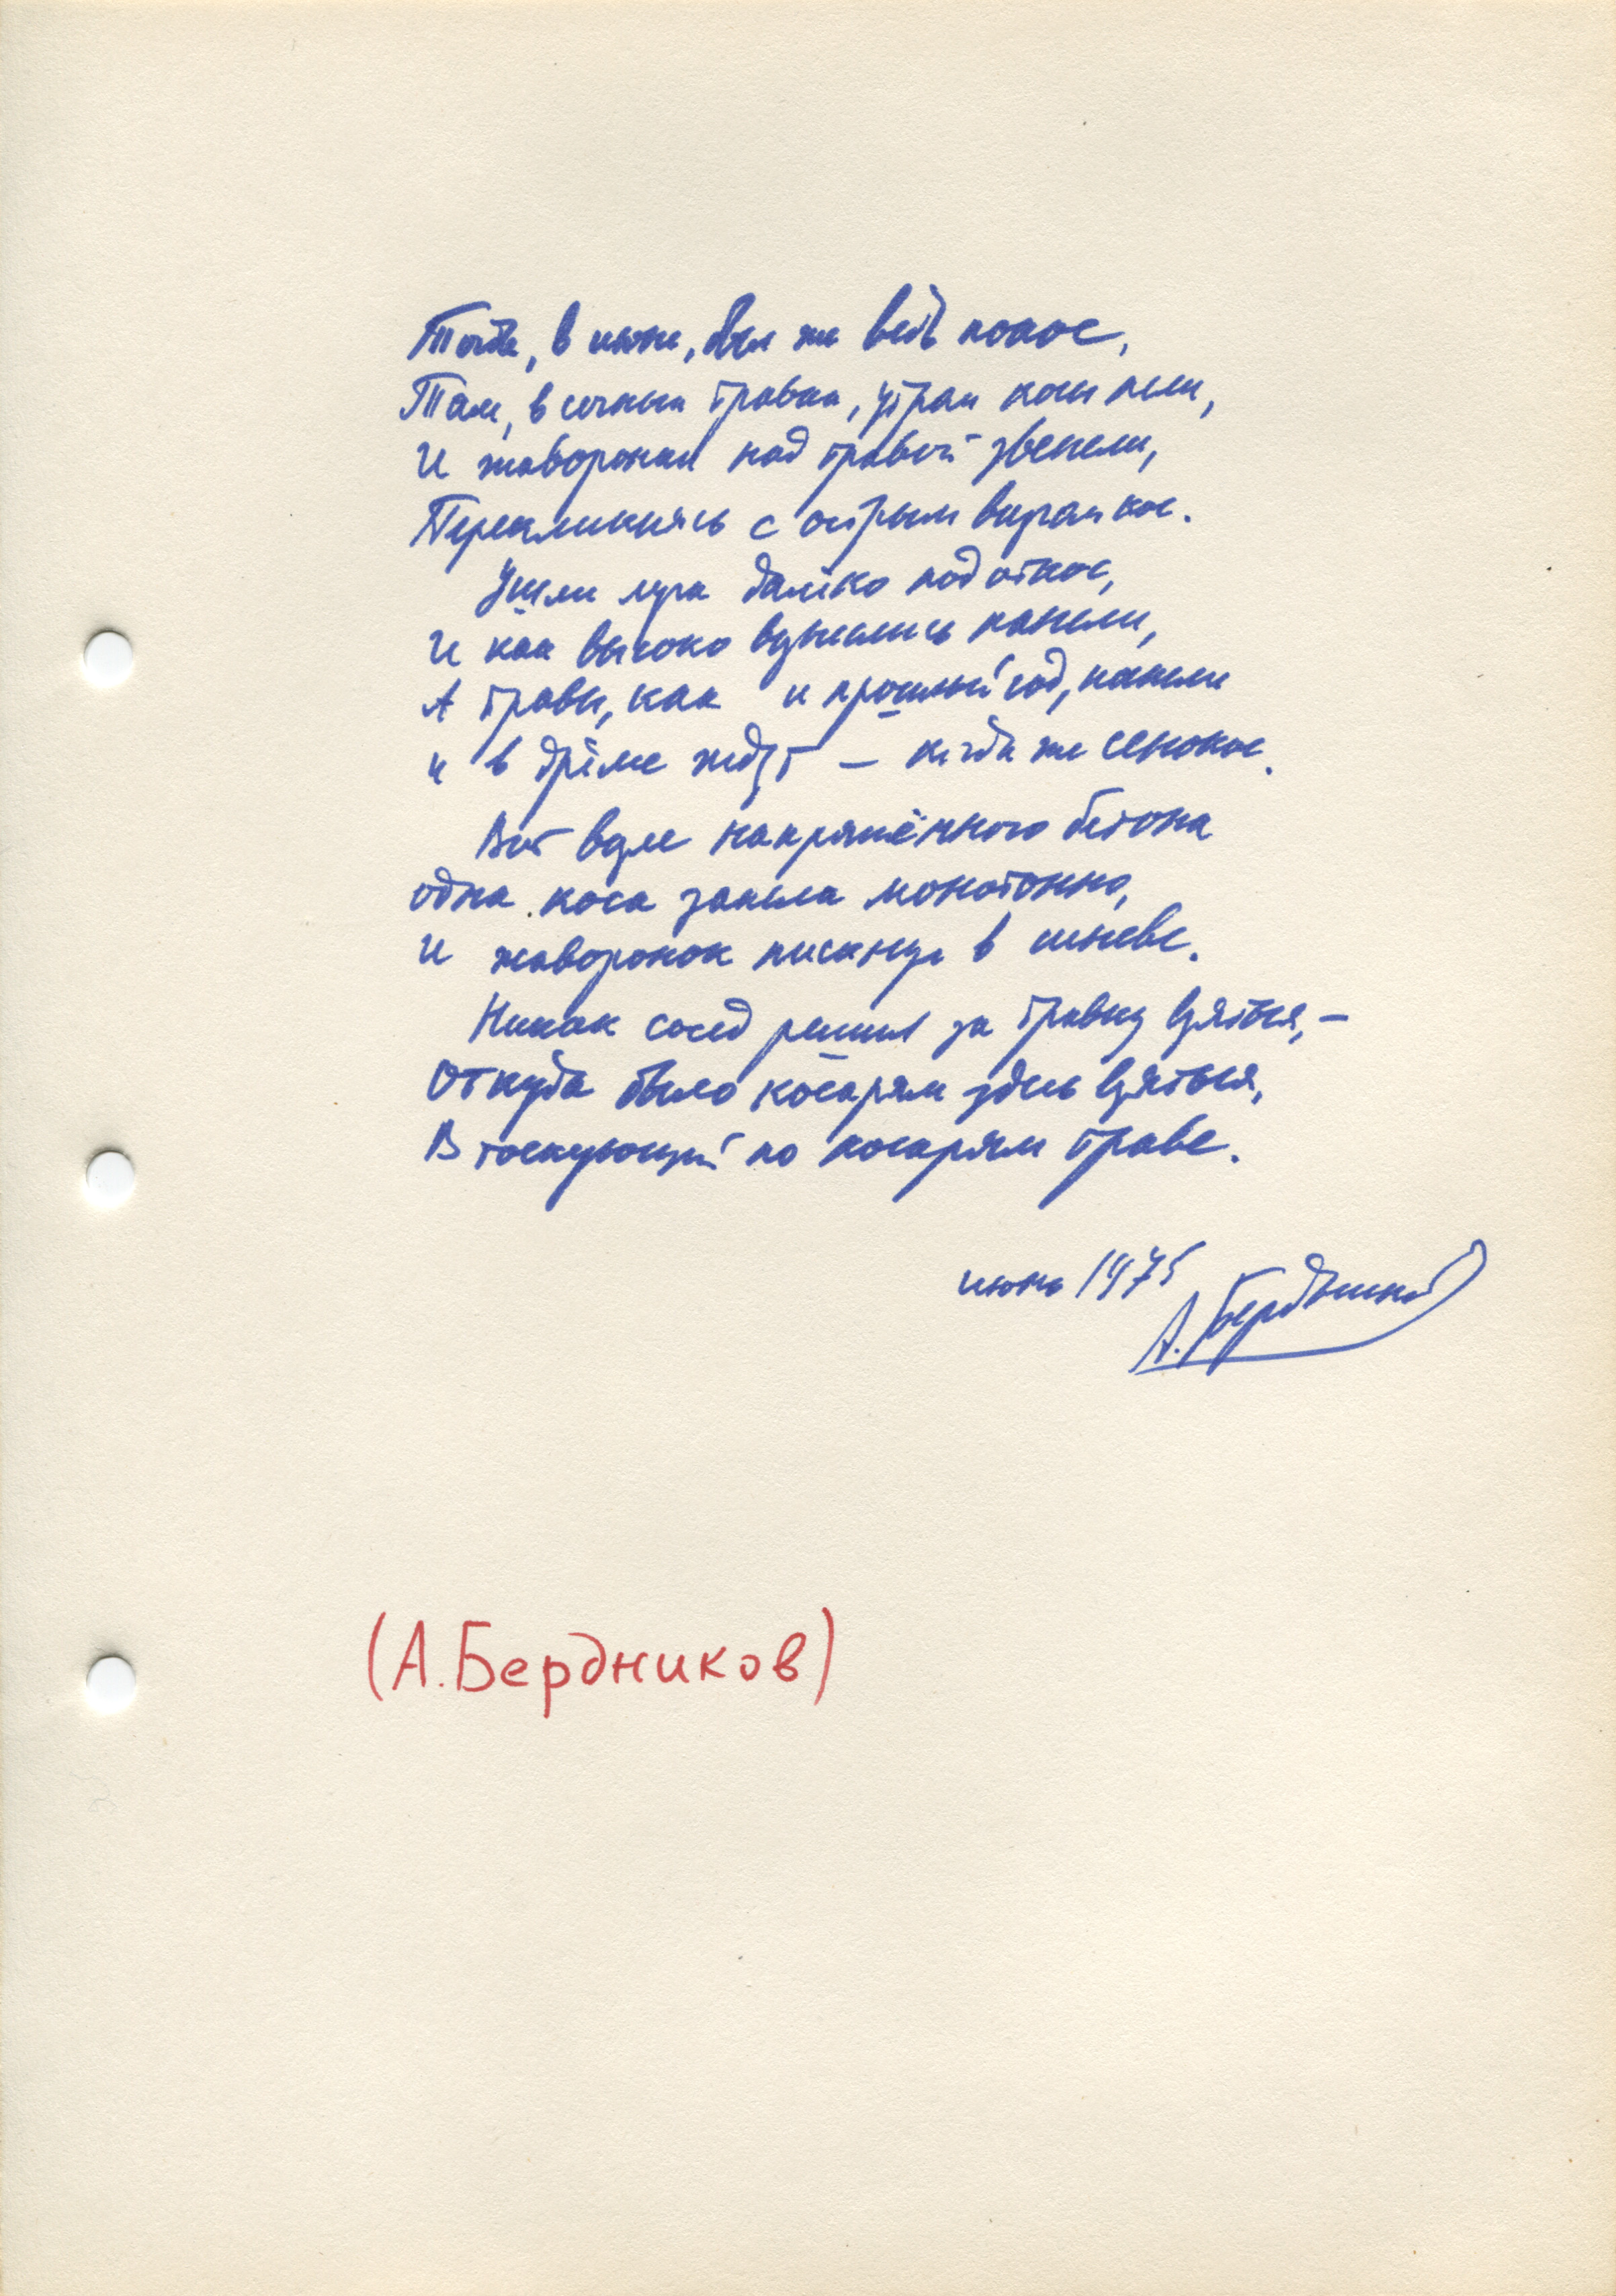 Тогда, в июне, был же ведь покос,
Там, в сочных травах, утром косы пели,
И жаворонки над травой звенели,
Перекликаясь с острым вскриком кос.
Ушли луга далёко под откос,
И как высоко вздымались панели,
А травы, как и прошлый год,
и в дрёме ждут — когда же сенокос.
Вот возле напряжённого бетона
одна коса запела монотонно,
И жаворонок пискнул в синеве.
Никак сосед решил за травку взяться, –
Откуда было косарям здесь взяться,
В тоскующей по косарям траве.
июнь 1975
А. Бердников
(А. Бердников)